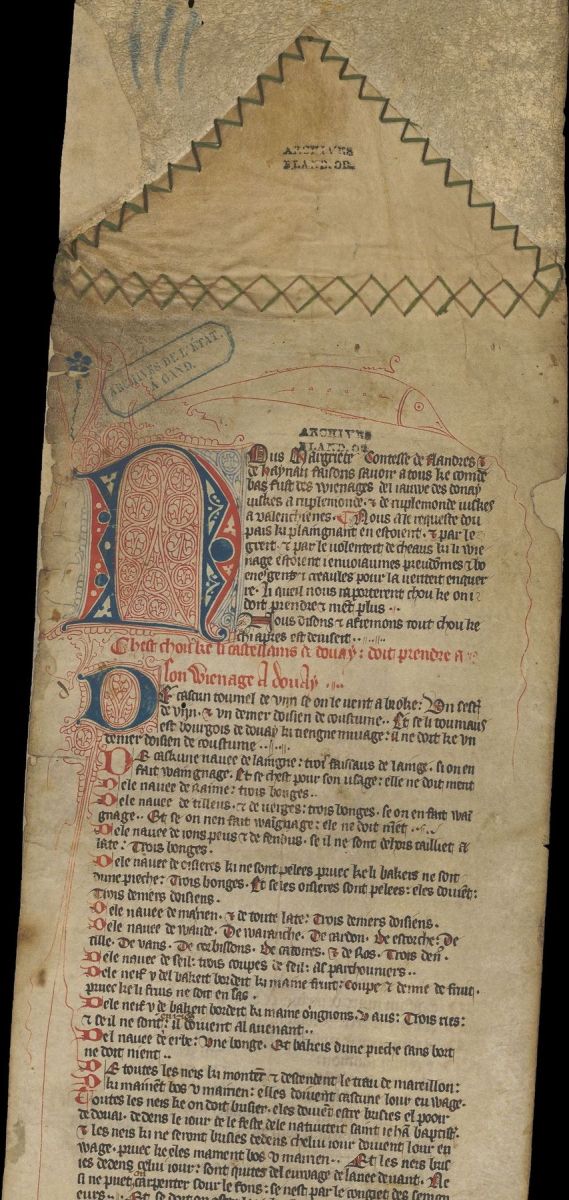 ARCHIVES
FLAND. OR.
ARCHIVES DE L'ÉTAT.
A GAND.
ARCHIVES
FLAND. OR.
Nous Margriete Contesse de flandres &
de haynau faisons savoir a tous ke comme
bas fust des wienages del iauwe des douay
iuskes a ruplemonde. & de ruplemonde iuskes
a valenchienes. Nous a le requeste dou
pais ki plaingnant en estoient. & par le
greit. & par le volenteit de cheaus ki li wie
nage estoient i envoiaumes preudomes & bo
ene gent & creaules pour la veriteit enquer
re. li queil nous raporterent chou ke on i
doit prendre & nient plus
Nous disons & afermons tout chou ke
chi apres est deviseit
Chest chou ke li castellains de douay: doit prendre a
son wienage A douay
De cascun tounel de vin se on le vent a broke: Un sestier
de vin. & un denier doisien de coustume. Et se li touniaus
est bourgois de douay ki viengne muiage: il ne doit ke un
denier doisien de coustume
De caskune navee de laingne: trois faissiaus de laingne. si on en
fait waingnage. Et se chest pour son usage: elle ne doit nient
Dele navee de raime: trois bonges
Dele navee de tilleus. & de verges: trois bonges. se on en fait wai
gnage. Et se on nen fait waignage: ele ne doit nient
Dele navee de ions peus & de fendus. se il ne sont dehors tailliet a
late: Trois bonges.
Dele navee de osieres ki ne sont pelees pruec ke li bakeis ne soit
dune pieche: Trois bonges. Et se les osieres sont pelees: eles doivent:
Trois deniers doisiens.
Dele navee de marien. & de toute late: Trois deniers doisiens.
Dele navee de waude. De waranche. De cardon. De escorche. De
tille. De vans. De corbissons. De catoires. & de Ros. Trois den.
Dele navee de seil: trois coupes de seil: as parchonniers
Dele neif u del bakeit bordeit ki maine fruit: coupe & demie de fruit.
pruec ke li fruis ne soit en sas.
Dele neif u de bakeit bordeit ki maine ongnons. u aus: Trois ries:
& se il ne sont: il doivent al avenant
Del navee de erbe: Une bonge. Et bakeis dune pieche sans bort
ne doit nient
De toutes les neis ki montent & descendent le trau de mareillon:
ki mainent bos u mairien: elles doivent cascune lour eu wage.
Toutes les neis ke on doit busier. eles doivent estre busies el pooir
de douai. dedens le iour de le feste dele nativiteit saint iehan baptist.
& les neis ki ne seront busies dedens chelui iour doivent lour eu
wage. pruec ke eles mainent bos u mairien. Et les neis bus
ies dedens celui iour: sont quites del euwage de lanee devant. Ne
si ne puet on carpenter sour le fons: se nest par le congiet des